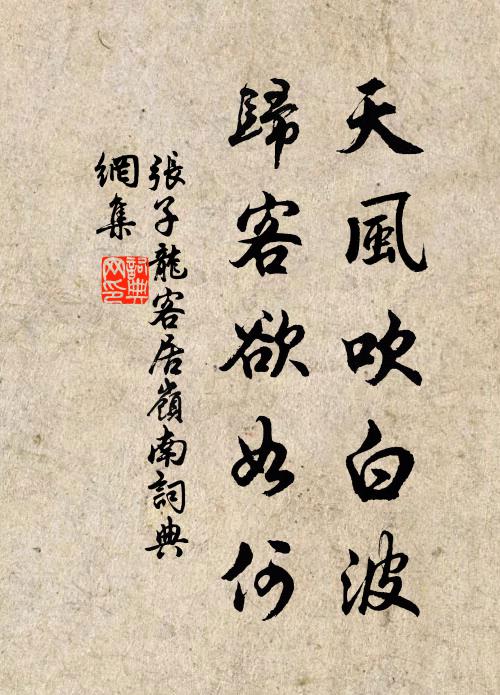 天風吹白波
歸客欲如何
張子龍客居嶺南詞典
網集
詞典
网印